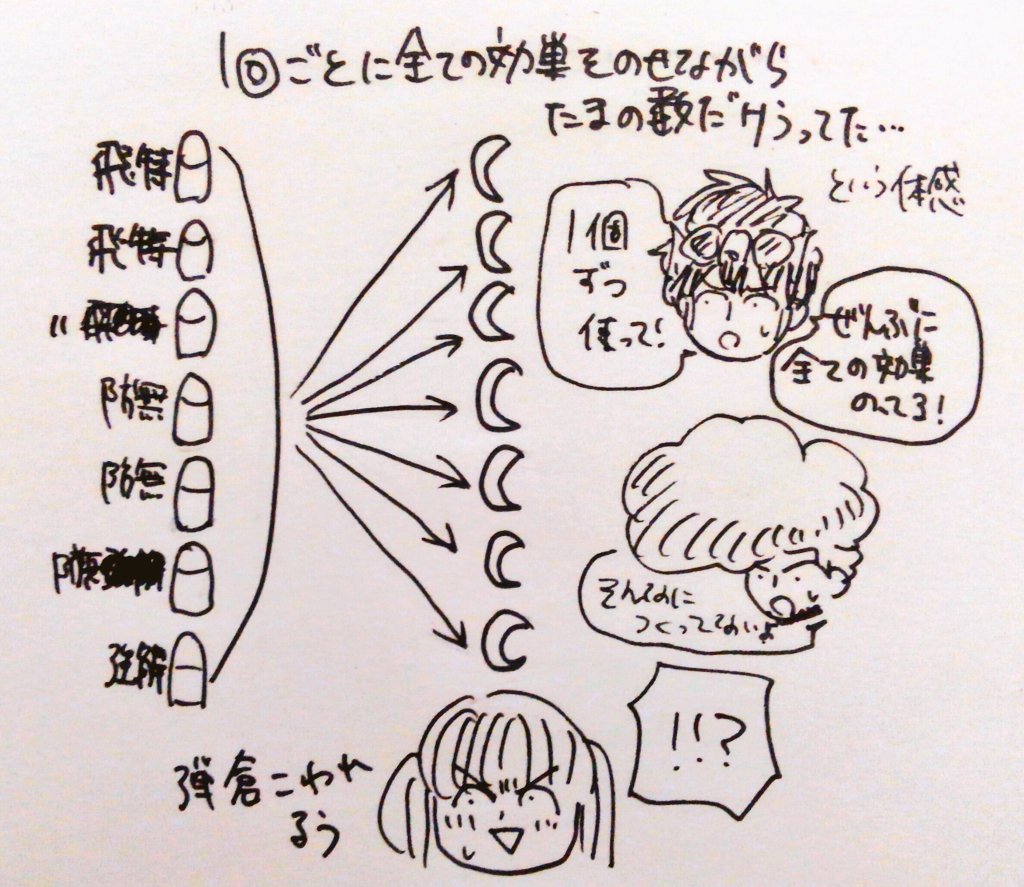 1回ごとに全ての効果をのせながら
たまの数だけうってた…
という体感
飛特
飛特
〃
防無
防無
防
強解
1個
ずつ
使って!
ぜんぶに
全ての効果
のってる!
そんなに
つくってないよ
!!?
弾倉こわれ
るう